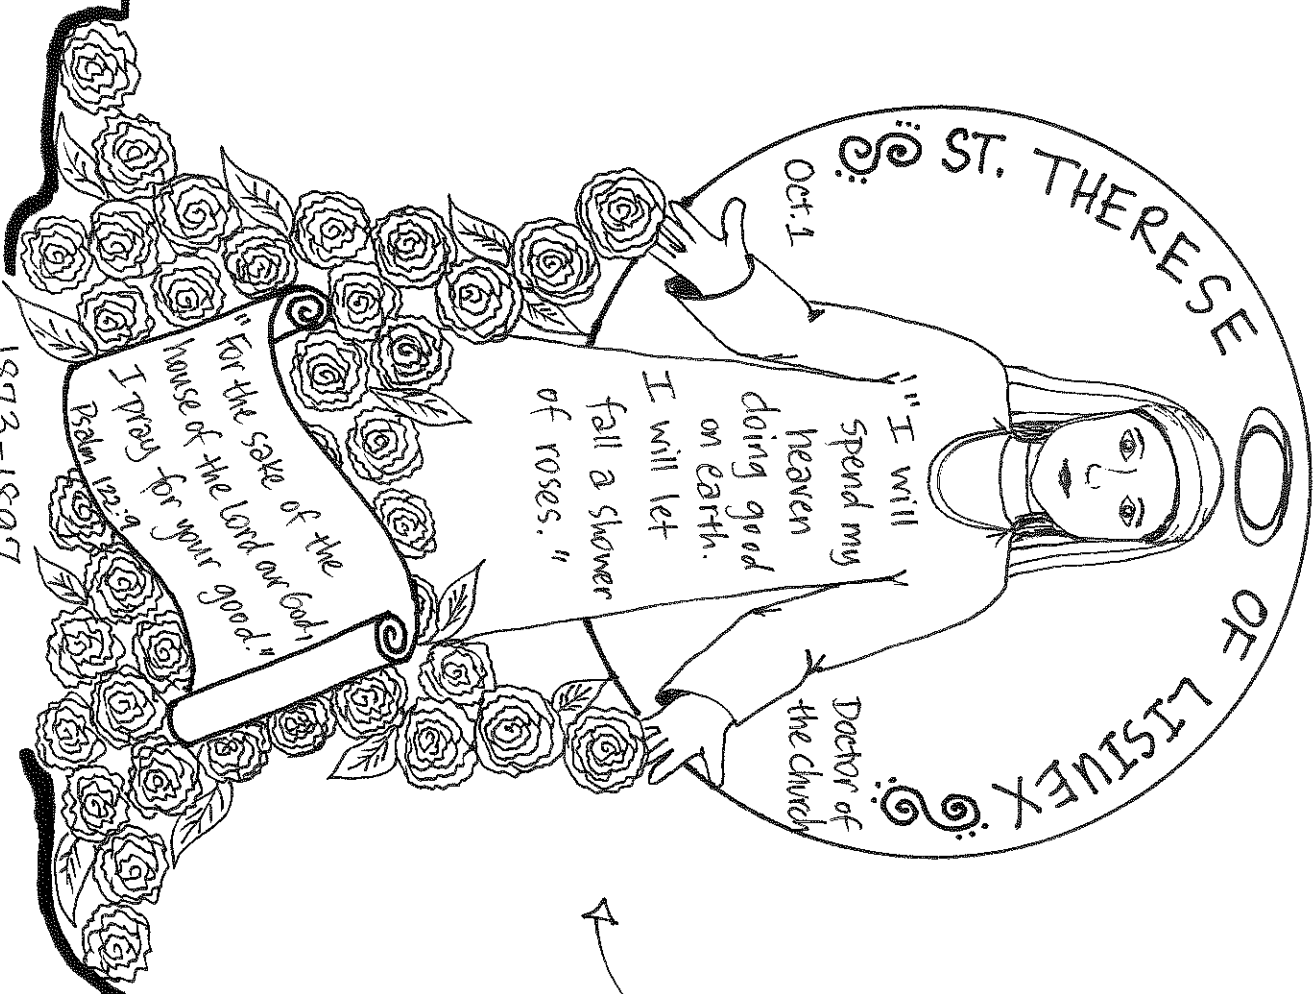 ST. THERESE OF LISIUEX
Oct. 1
Doctor of
the church
"I will
spend my
heaven
doing good
on earth.
I will let
fall a shower
of roses."
"For the sake of the
house of the Lord our God,
I pray for your good."
Psalm 122:9
1873-1897